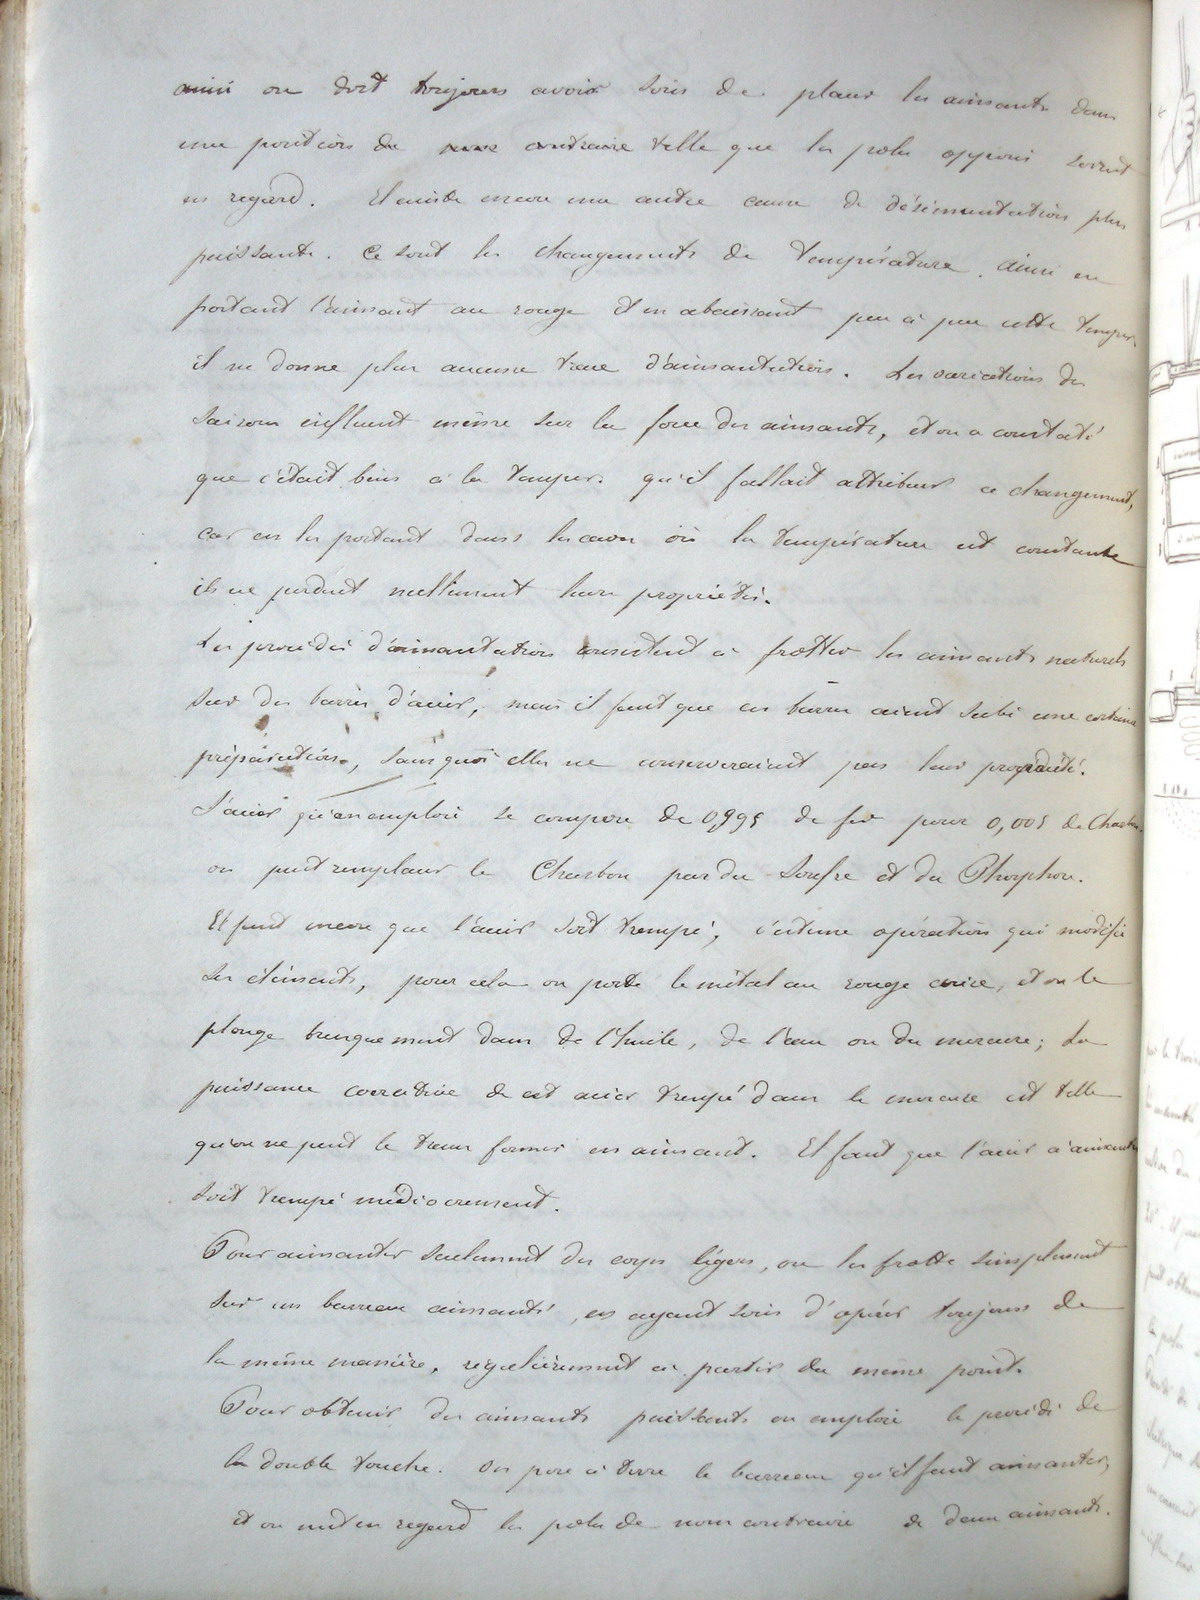 ainsi on doit toujours avoir soin de placer les aimants dans
une position de sens contraire telle que les poles opposés soient
en regard. Il existe encore une autre cause de désaimantation plus
puissante. Ce sont les changements de température. ainsi en
portant l'aimant au rouge et en abaissant peu à peu cette temper.
il ne donne plus aucune trace d'aimantation. Les variations des
saisons influent même sur la force des aimants, et on a constaté
que c'était bien à la temper. qu'il fallait attribuer ce changement,
car en les portant dans les caves où la température est constante
ils ne perdent nullement leurs propriétés.
Les procédés d'aimantation consistent à frotter les aimants naturels
sur des barres d'acier, mais il faut que ces barres aient subi une certaine
préparation, sans quoi elles ne conserveraient pas leur propriété.
L'acier qu'on emploie se compose de 0,995 de fer pour 0,005 de Charbon.
on peut remplacer le Charbon par du Soufre et du Phosphore.
Il faut encore que l'acier soit trempé, c'est une opération qui modifie
ses éléments, pour cela on porte le métal au rouge cerise, et on le
plonge brusquement dans de l'huile, de l'eau ou du mercure; La
puissance coercitive de cet acier trempé dans le mercure est telle
qu'on ne peut le transformer en aimant. Il faut que l'acier à aimanter
soit trempé médiocrement.
Pour aimanter seulement des corps légers, on les frotte simplement
sur un barreau aimanté, en ayant soin d'opérer toujours de
la même manière, regulièrement à partir du même point.
Pour obtenir des aimants puissants on emploie le procédé de
la double touche. On pose à terre le barreau qu'il faut aimanter,
et on met en regard les poles de nom contraire de deux aimants.